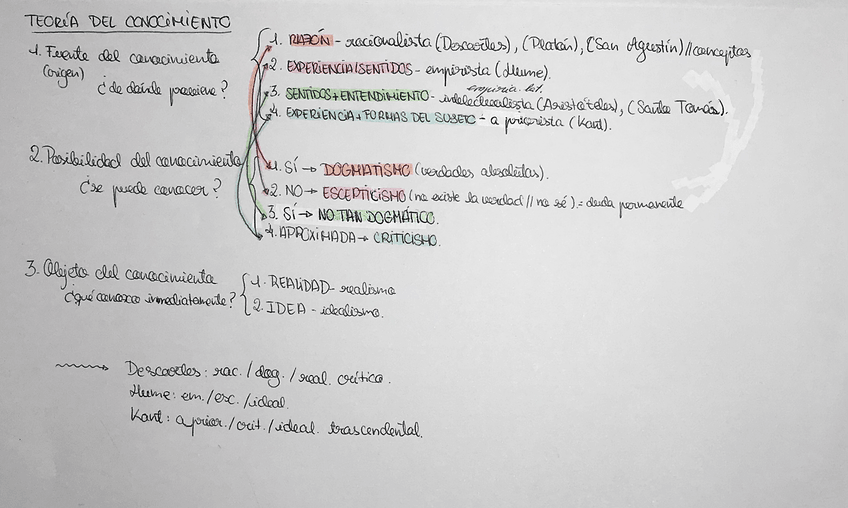 TEORÍA DEL CONOCIMIENTO
1. Fuente del conocimiento
(origen) ¿de dónde proviene?
1. RAZÓN - racionalista (Descartes), (Platón), (San Agustín) // conceptos
2. EXPERIENCIA/SENTIDOS - empirista (Hume).
3. SENTIDOS + ENTENDIMIENTO - intelectualista (Aristóteles), (Santo Tomás).
4. EXPERIENCIA + FORMAS DEL SUJETO - a priorista (Kant).
2. Posibilidad del conocimiento
¿se puede conocer?
1. SÍ → DOGMATISMO (verdades absolutas).
2. NO → ESCEPTICISMO (no existe la verdad // no sé) = duda permanente
3. SÍ → NO TAN DOGMÁTICO.
4. APROXIMADA → CRITICISMO.
3. Objeto del conocimiento
¿qué conozco inmediatamente?
1. REALIDAD - realismo
2. IDEA - idealismo.
Descartes: rac. / dog. / real. crítico.
Hume: em. / esc. / ideal.
Kant: a prior. / crit. / ideal. trascendental.